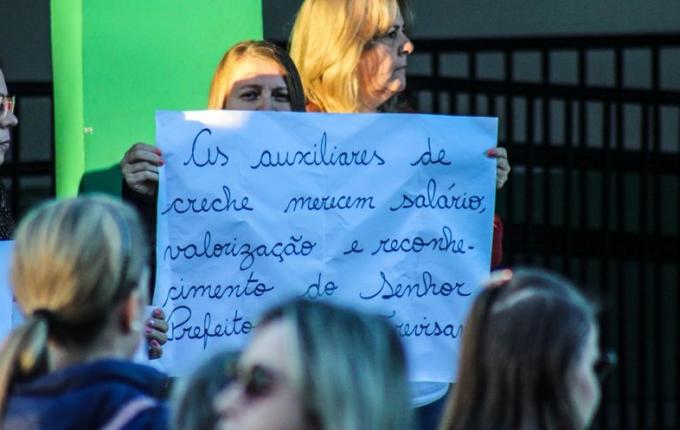 As auxiliares de
creche merecem salário,
valorização e reconhe-
cimento do Senhor
Prefeito Trevisan